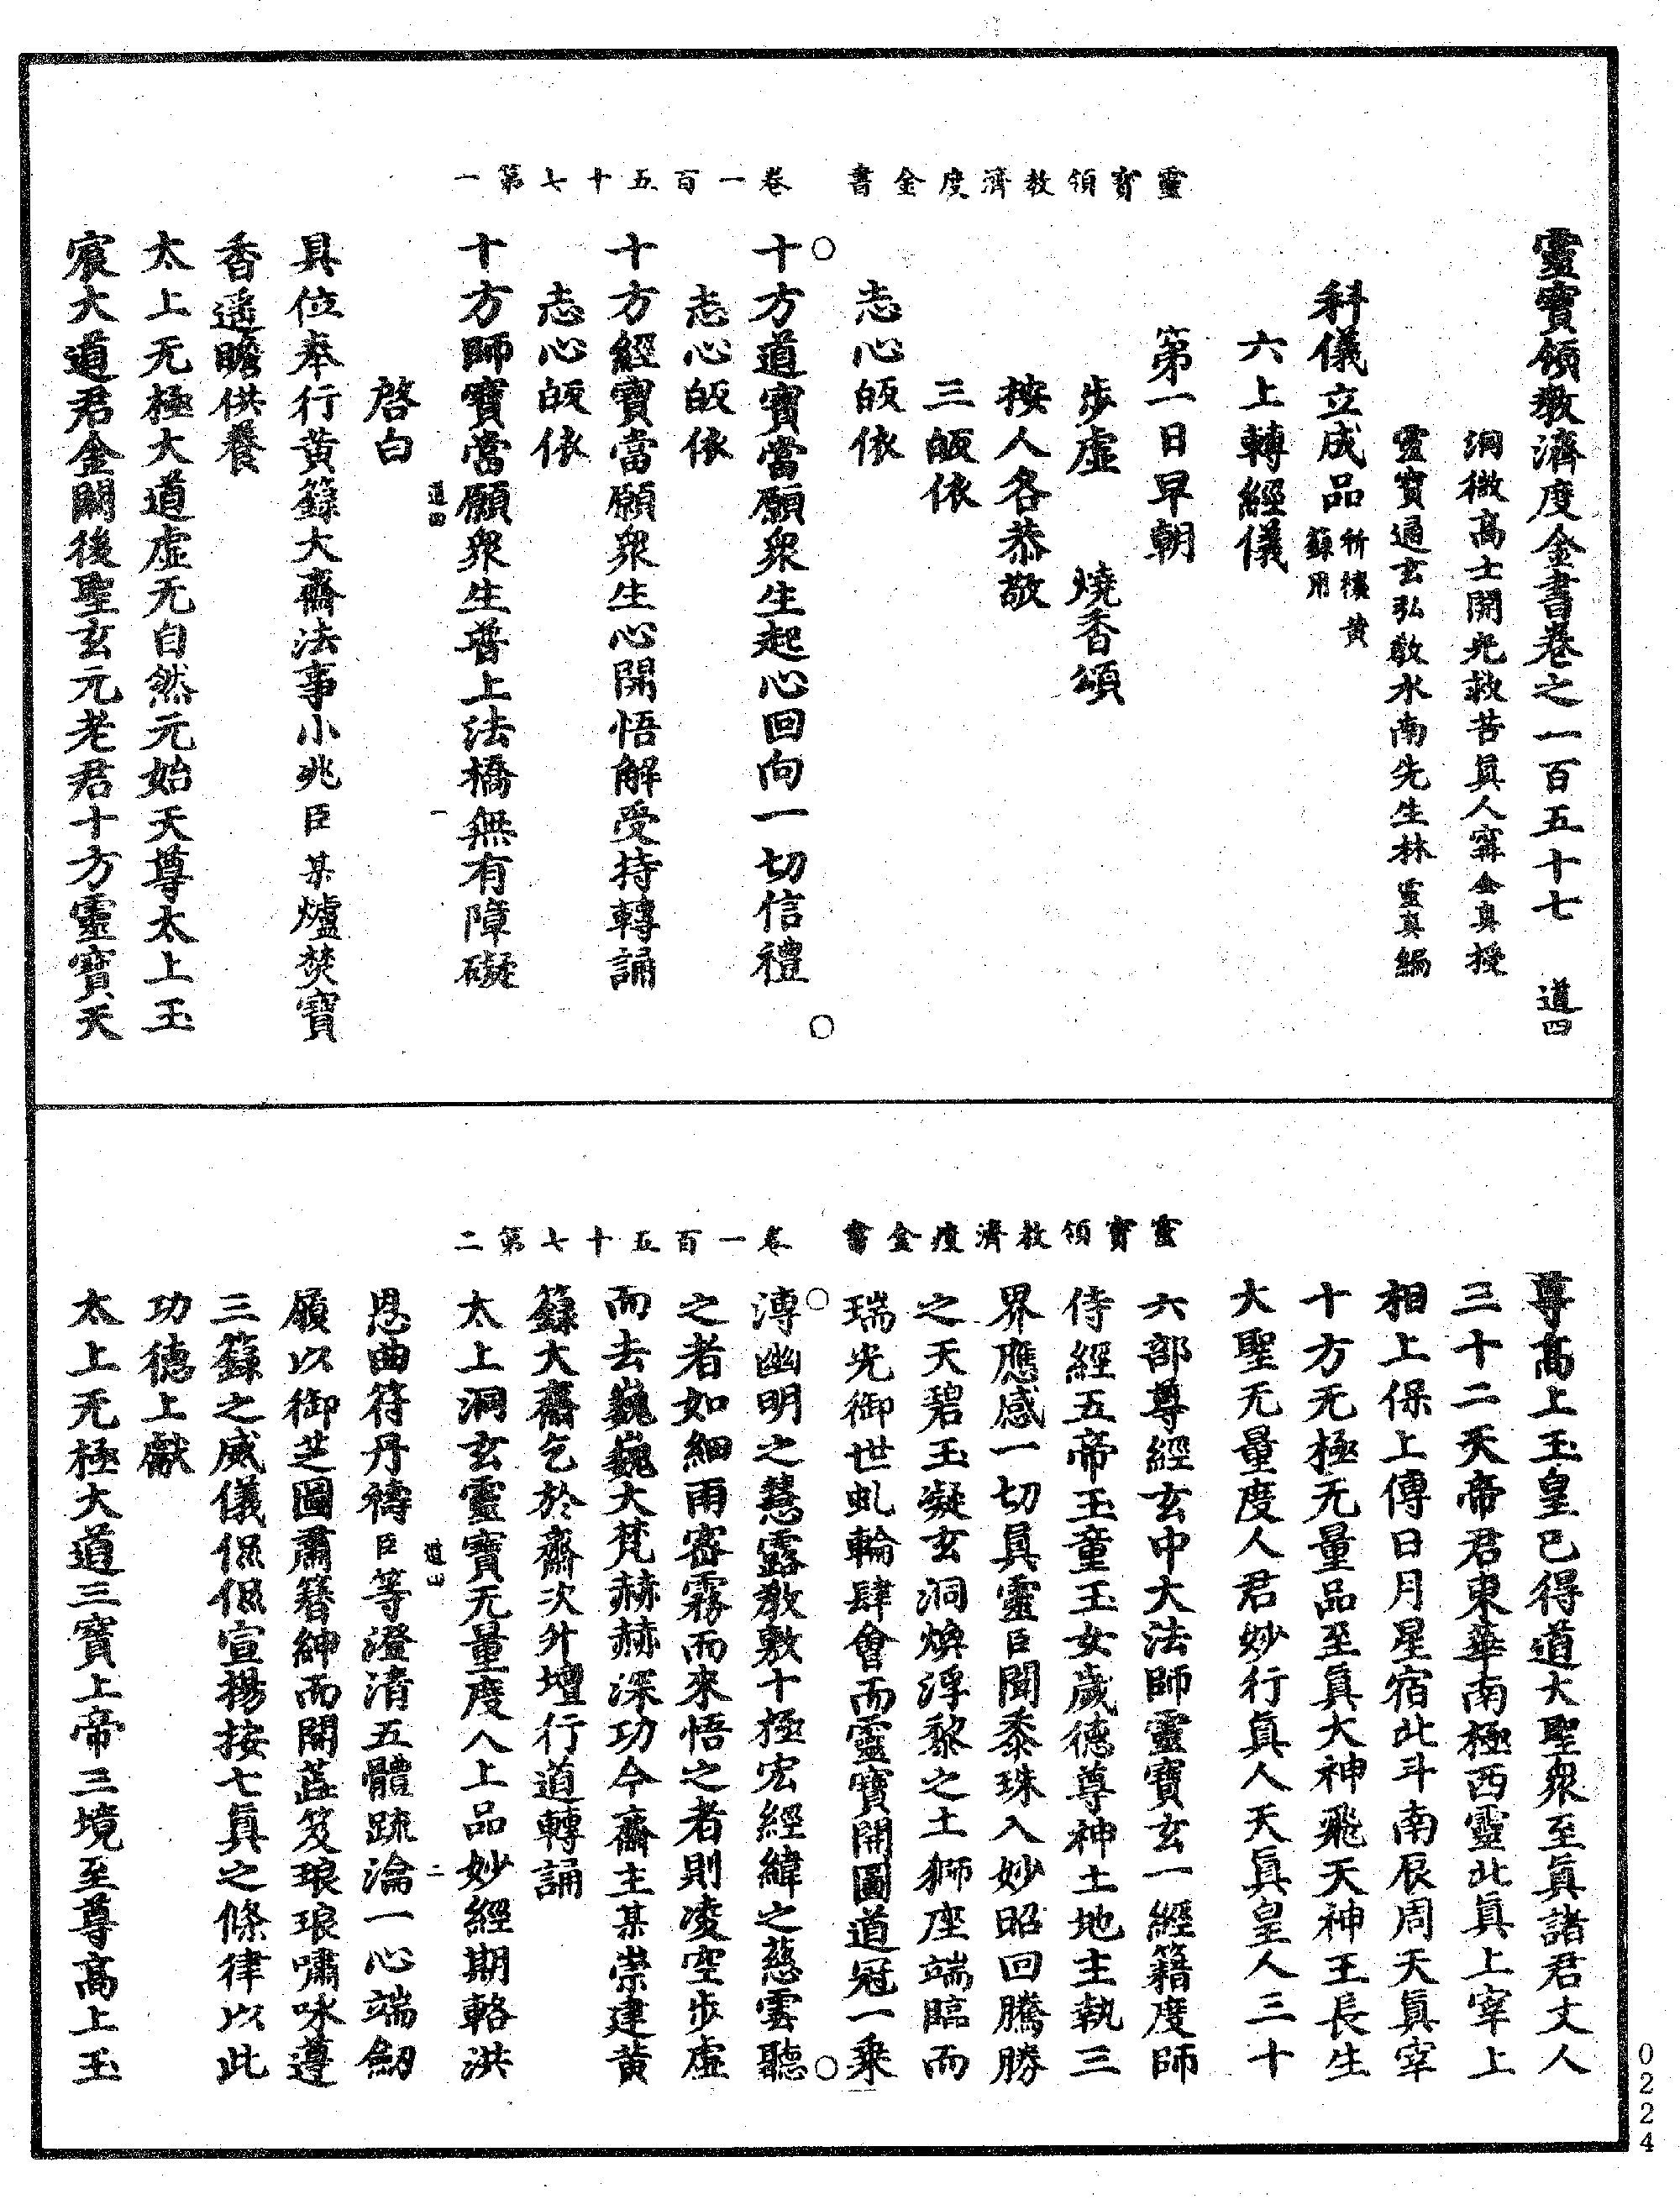 靈寶領教濟度金書卷之一百五十七　道四
洞微高士開光救苦眞人甯全眞授
靈寶通玄弘教水南先生林靈眞編
科儀立成品祈禳黃籙用
六上轉經儀
第一日早朝
步虛　燒香頌
按人各恭敬
三皈依
志心皈依
靈寶領教濟度金書　卷一百五十七第一
十方道寶當願眾生起心回向一切信禮
志心皈依
十方經寶當願眾生心開悟解受持轉誦
志心皈依
十方師寶當願眾生普上法橋無有障礙
道四　一
啓白
具位奉行黃籙大齋法事小兆臣某爐焚寶
香遥瞻供養
太上无極大道虛无自然元始天尊太上玉
宸大道君金闕後聖玄元老君十方靈寶天
尊高上玉皇已得道大聖眾至眞諸君丈人
三十二天帝君東華南極西靈北眞上宰上
相上保上傅日月星宿北斗南辰周天眞宰
十方无極无量品至眞大神飛天神王長生
大聖无量度人君妙行眞人天眞皇人三十
六部尊經玄中大法師靈寶玄一經籍度師
侍經五帝玉童玉女歲德尊神土地主執三
界應感一切眞靈臣聞黍珠入妙昭回騰勝
之天碧玉凝玄洞煥浮黎之土獅座端臨而
瑞光御世虬輪肆會而靈寶開圖道冠一乘
靈寶領教濟度金書　卷一百五十七第二
溥幽明之慧露教敷十極宏經緯之慈雲聽
之者如細雨密霧而來悟之者則凌空步虛
而去巍巍大梵赫赫深功今齋主某崇建黃
籙大齋乞於齋次升壇行道轉誦
太上洞玄靈寶无量度人上品妙經期輅洪
道四　二
恩曲符丹禱臣等澄清五體疏瀹一心端劒
履以御芝圖肅簪紳而開蕋笈琅琅嘯咏遵
三籙之威儀倧倧宣揚按七眞之條律以此
功德上獻
太上无極大道三寶上帝三境至尊高上玉
0224